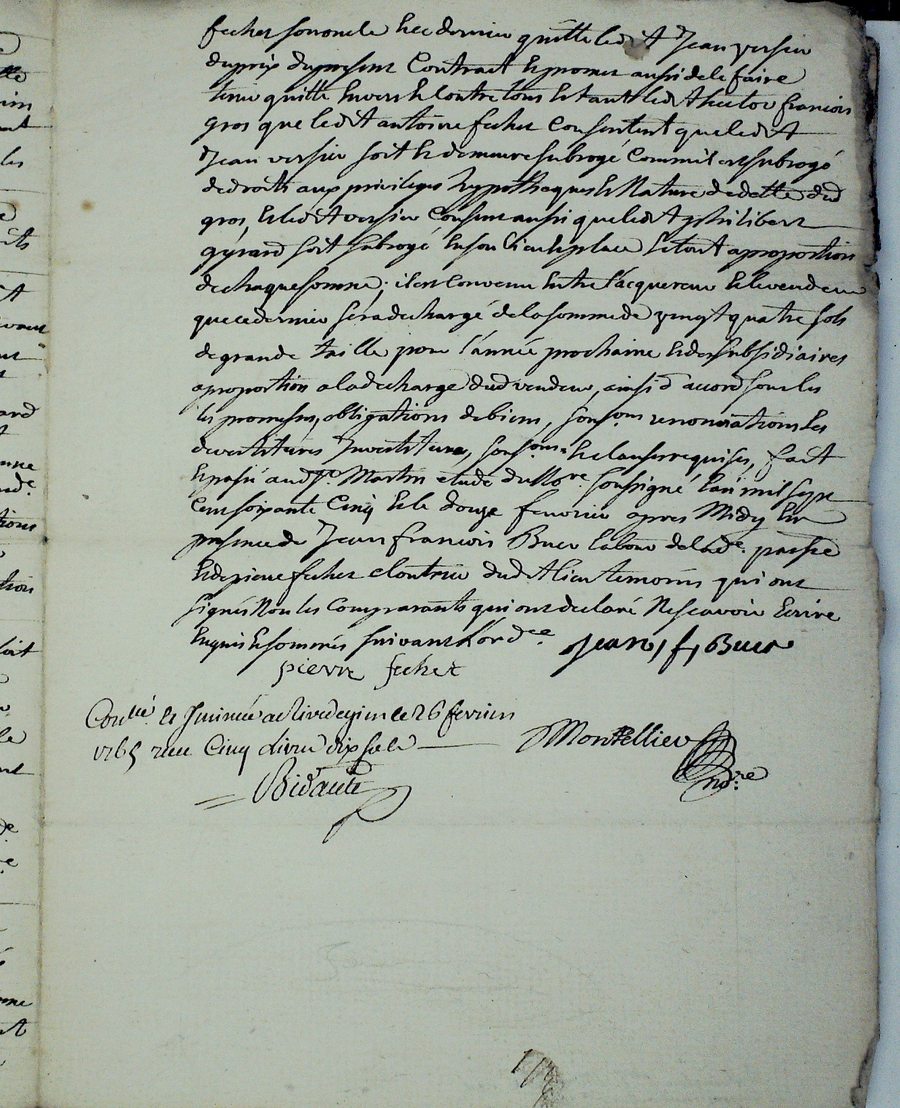 fecher son oncle & ce dernier quitte ledit Jean versier
du prix du present Contract & promet aussi de le faire
tenir quitte Envers & Contre tous & tant ledit hector françois
gros que ledit antoine fecher Consentent que ledit
Jean versier soit & demeure subrogé Comme il est subrogé
de droits aux privileges hypotheques & Nature de dette dud
gros, & ledit versier Consent aussi que ledit philibert
gyrard soit subrogé En son lieu & place le tout a proportion
de chaque somme, il est Convenu Entre l'acquereur & le vendeur
que ce dernier sera dechargé de la somme de vingt quatre sols
de grande taille pour l'année prochaine & des subsidiaires
a proportion a la decharge dud vendeur, ainsi d'accord sous les
les promesses, obligations de biens, renonciations les
devestitures Investitures, & clauses requises, fait
& passé aud St Martin etude du no.re soussigné l'an mil sept
Cent soixante Cinq & le douze fevrier apres Midy En
presence de Jean francois Buer labour de lad.e parsse
& de pierre fecher dud lieu temoins qui ont
signés Non les Comparants qui ont declaré Ne scavoir Ecrire
Enquis & sommés suivant l'ord.ce Jean, f, Buer
pierre fecher
Con.llé & Insinué a le 26 fevrier
1765 reçu Cinq livres dix sols
Montellier
no.re